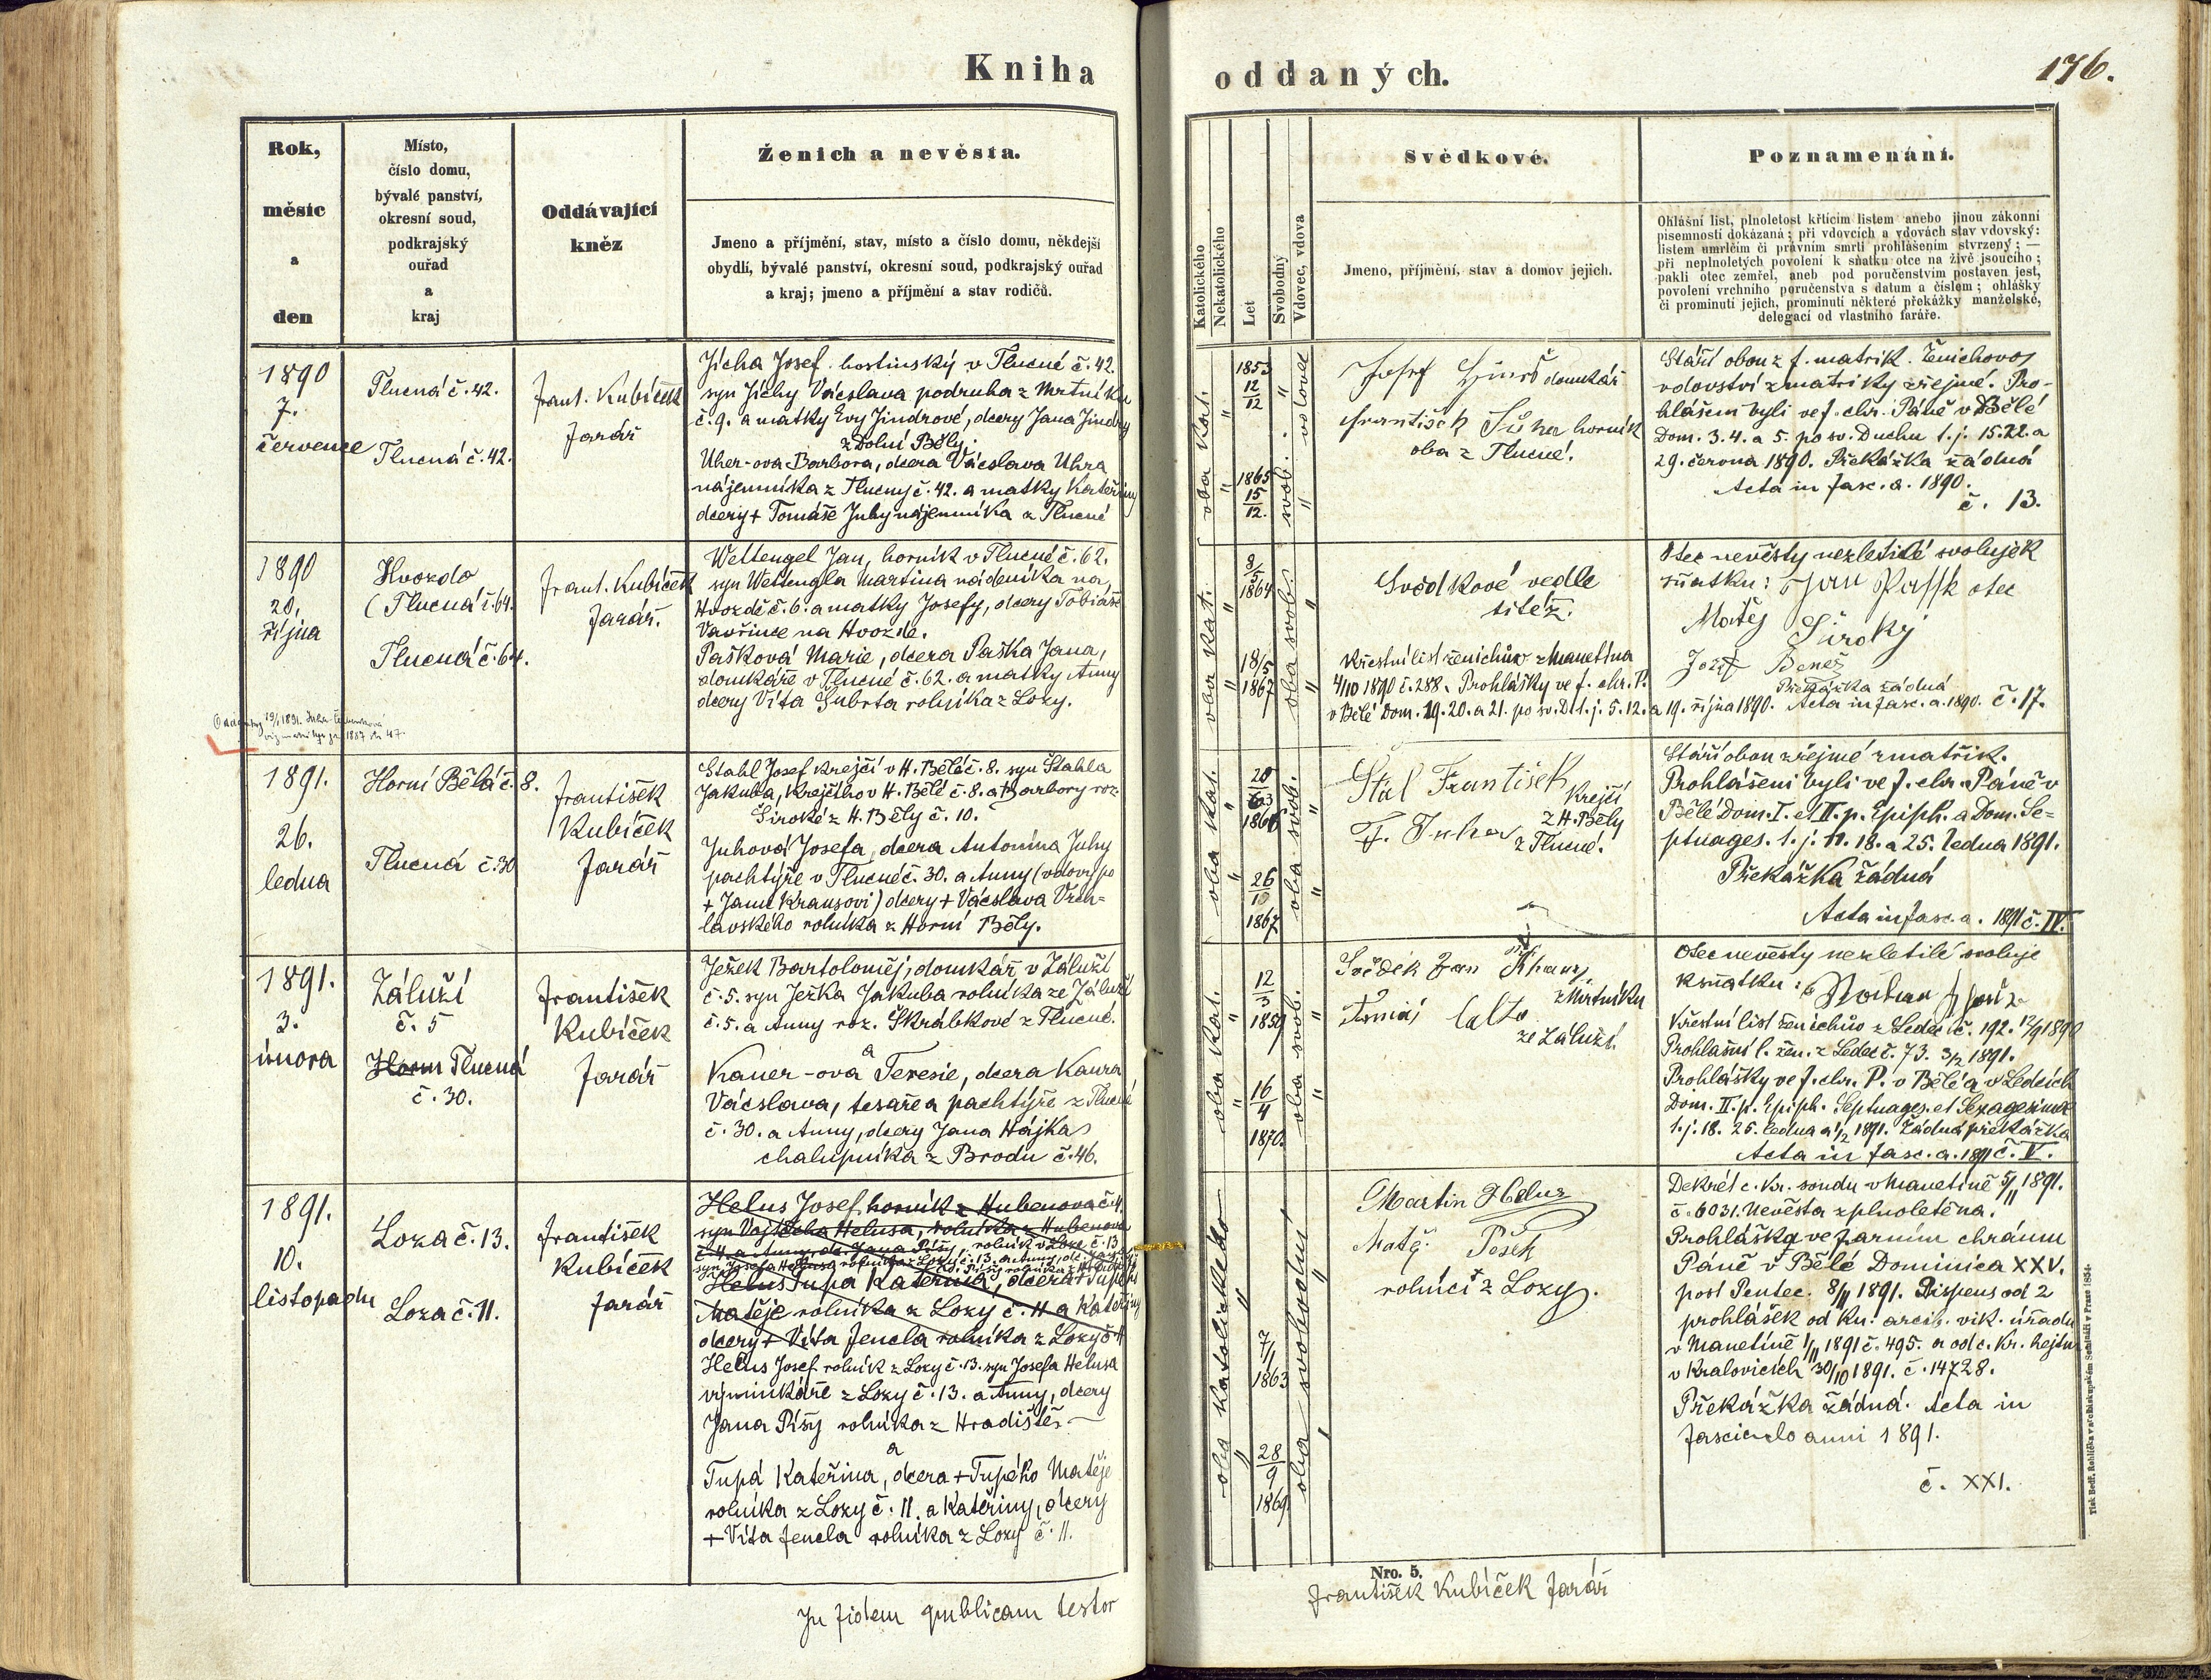 Kniha
oddaných.
176.
Rok,
měsíc
a
den
Místo,
číslo domu,
bývalé panství,
okresní soud,
podkrajský
ouřad
a
kraj
Oddávající
kněz
Ženich a nevěsta.
Jmeno a příjmění, stav, místo a číslo domu, někdejší
obydlí, bývalé panství, okresní soud, podkrajský ouřad
a kraj; jmeno a příjmění a stav rodičů.
Katolického
Nekatolického
Let
Svobodný
Vdovec, vdova
Svědkové.
Jmeno, příjmění, stav a domov jejich.
Poznamenání.
Ohlášní list, plnoletost křticím listem anebo jinou zákonní
písemností dokázaná; při vdovcích a vdovách stav vdovský:
listem umrlčím či právním smrti prohlášením stvrzený; —
při neplnoletých povolení k sňatku otce na živě jsoucího;
pakli otec zemřel, aneb pod poručenstvím postaven jest,
povolení vrchního poručenstva s datum a číslem; ohlášky
či prominutí jejich, prominutí některé překážky manželské,
delegací od vlastního faráře.
1890
7.
července
Tlucná č. 42.
Tlucná č. 42.
Frant. Kubíček
farář
Jícha Josef hostinský v Tlucné č. 42.
syn Jíchy Václava podruha z Mrtníku
č. 9. a matky Evy Jindrové, dcery Jana Jindry
z Dolní Bělý.
Uher-ova Barbora, dcera Václava Uhra
nájemníka z Tlucny č. 42. a matky Kateřiny
dcery + Tomáše Juhy nájemníka z Tlucné
oba kat.
"
"
1853
12
12
1865
15
12.
svob.
"
vdovec
"
domkář
František Šůha horník
oba z Tlucné.
Stáří obou z f. matrik. Ženichovo
vdovství z matriky zřejmé. Pro-
hlášeni byli ve f. chr. Páně v Bělé
Dom. 3. 4. a 5. po sv. Duchu t. j. 15. 22. a
29. června 1890. Překážka žádná
Acta in fasc. a. 1890.
č. 13.
1890
20.
října
Hvozdo
(Tlucná č. 64.
Tlucná č. 64.
Frant. Kubíček
farář.
Wettengel Jan, horník v Tlucné č. 62.
syn Wettengla Martina nádeníka na
Hvozdě č. 6. a matky Josefy, dcery Tobiáše
Vavřince na Hvozdě.
Pašková Marie, dcera Paška Jana,
domkáře v Tlucné č. 62. a matky Anny
dcery Víta Šubrta rolníka z Lozy.
oba kat.
"
"
8
5
1864
18/5
1867
oba svob.
"
"
Svědkové vedle
titéž.
Křestní list ženichův z Manetína
4/10 1890 č. 288. Prohlášky ve f. chr. P.
v Bělé Dom. 19. 20. a 21. po sv. D. t. j. 5. 12. a 19. října 1890. Acta in fasc. a. 1890. č. 17.
Otec nevěsty nezletilé svoluje k
sňatku: Jan Paššk otec
Matěj Široký
Jozef Beneš
Překážka žádná
1891.
26.
ledna
Horní Bělá č. 8.
Tlucná č. 30
František
Kubíček
farář
Stahl Josef krejčí v H. Bělé č. 8. syn Štahla
Jakuba, krejčího v H. Bělé č. 8. a Barbory roz.
Široké z H. Bělý č. 10.
Juhová Josefa, dcera Antonína Juhy
pachtýře v Tlucné č. 30. a Anny (vdovy po
+ Janu Krausovi) dcery + Václava Vrch-
lavského rolníka z Horní Bělý.
oba kat.
"
"
20
3
1866
26
10
1867
oba svob.
"
"
Štál František krejčí
z H. Bělý
F. Juha z Tlucné.
Stáří obou zřejmé z matřik.
Prohlášeni byli ve f. chr. Páně v
Bělé Dom. I. et II. p. Epiph. a Dom. Se-
ptuages. t. j. 11. 18. a 25. ledna 1891.
Překážka žádná
Acta in fasc. a. 1891 č. IV.
1891.
3.
února
Záluží
č. 5
Horní Tlucná
č. 30.
František
Kubíček
farář
Ježek Bartoloměj, domkář v Záluží
č. 5. syn Ježka Jakuba rolníka ze Záluží
č. 5. a Anny roz. Škrábkové z Tlucné.
a
Kauer-ova Teresie, dcera Kaura
Václava, tesaře a pachtýře z Tlucné
č. 30. a Anny, dcery Jana Hájka
chalupníka z Brodu č. 46.
oba kat.
"
"
12
3
1859
16
4
1870.
oba svob.
"
"
Svědek Jan
z Mrtníku
ze Záluží.
Otec nevěsty nezletilé svoluje
k sňatku:
Křestní list ženichův z Ledec č. 192. 12/9 1890
Prohlášní l. žen. z Ledec č. 73. 3/2 1891.
Prohlášky ve f. chr. P. v Bělé a v Ledcích
Dom. II. p. Epiph. Septuages. et Sexagesima
t. j. 18. 25. ledna a 1/2 1891. Žádná překážka
Acta in fasc. a. 1891 č. V.
1891.
10.
listopadu
Loza č. 13.
Loza č. 11.
František
Kubíček
farář
Helus Josef, horník z Hubenova č. 4.
syn Vojtěcha Helusa, rolníka z Hubenova
Helus Tupa Kateřina, dcera + Tupého
Matěje rolníka z Lozy č. 11 a Kateřiny
dcery + Víta Jencla rolníka z Lozy č. 11
Helus Josef rolník z Lozy č. 13. syn Josefa Helusa
výminkáře z Lozy č. 13. a Anny, dcery
Jana Píšy rolníka z Hradiště.
a
Tupá Kateřina, dcera + Tupého Matěje
rolníka z Lozy č. 11. a Kateřiny, dcery
+ Víta Jencla rolníka z Lozy č. 11.
oba katolického
"
"
7/1
1863
28
9
1869
oba svobodní
"
Martin Helus
Matěj Pěšek
rolníci z Lozy.
Dekrét c. kr. soudu v Manetíně 5/11 1891.
č. 6031. Nevěsta zplnoletěna.
Prohláška ve farním chrámu
Páně v Bělé Dominica XXV.
post Pentec. 8/11 1891. Dispens od 2
prohlášek od kn. arcib. vik. úřadu
v Manetíně 1/11 1891 č. 495. a od c. kr. hejtm.
v Kralovicích 30/10 1891. č. 14728.
Překážka žádná. Acta in
fasciculo anni 1891.
č. XXI.
Tisk Bedř. Rohlíčka v arcibiskupském Semináři v Praze 1854.
In fidem publicam testor
Nro. 5.
František Kubíček farář